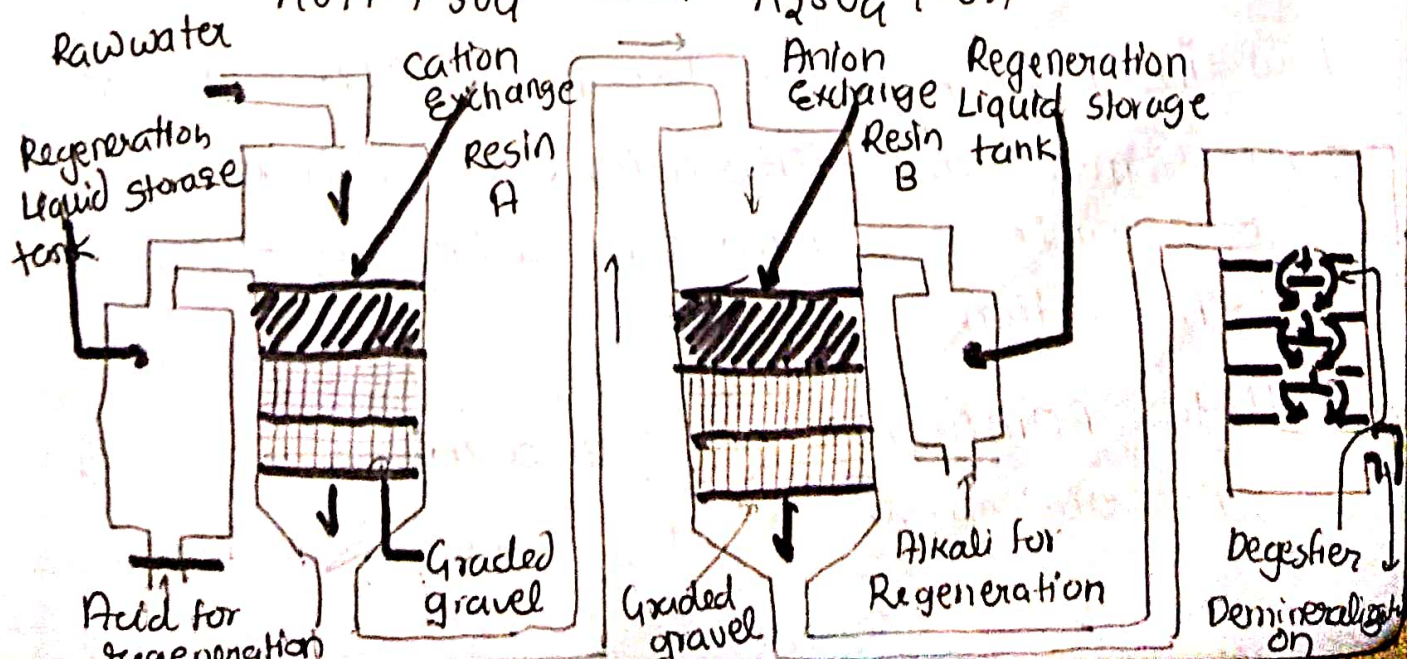 Raw water
Regeneration
Liquid storage
tank
Cation
Exchange
Resin
A
Anion
Exchange
Resin
B
Regeneration
Liquid storage
tank
Graded
gravel
Acid for
Graded
gravel
Alkali for
Regeneration
Degesfier